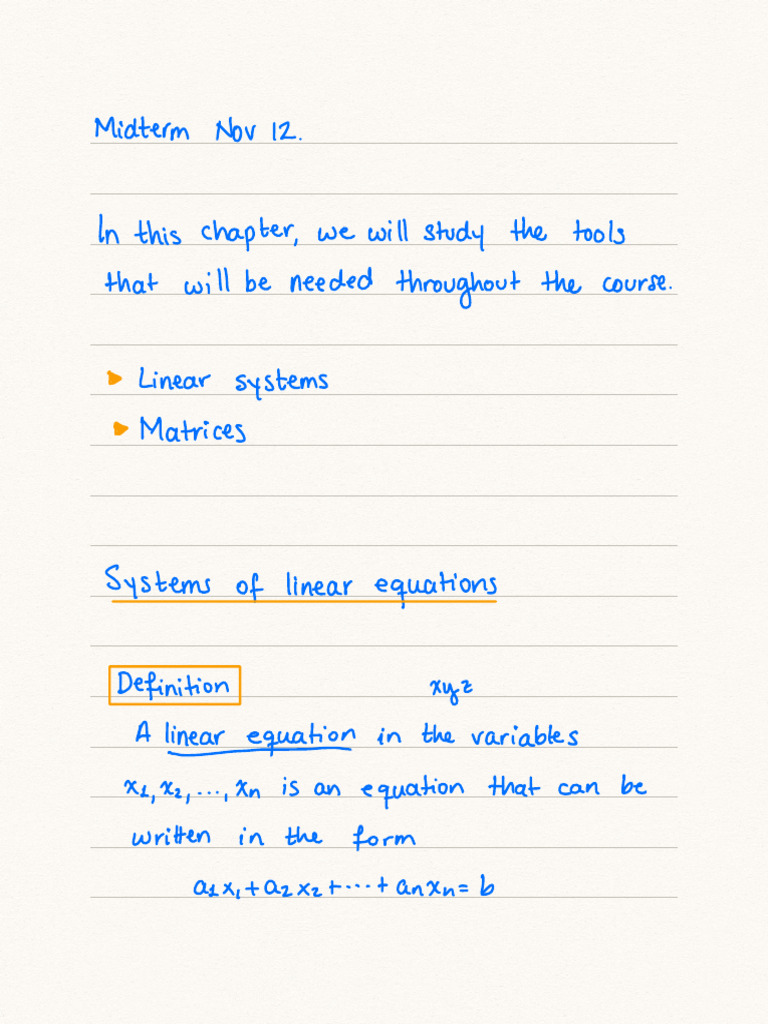 Midterm Nov 12.
In this chapter, we will study the tools
that will be needed throughout the course.
▸ Linear systems
▸ Matrices
Systems of linear equations
Definition
xyz
A linear equation in the variables
x₁, x₂, ..., xₙ is an equation that can be
written in the form
a₁x₁ + a₂x₂ + ··· + aₙxₙ = b